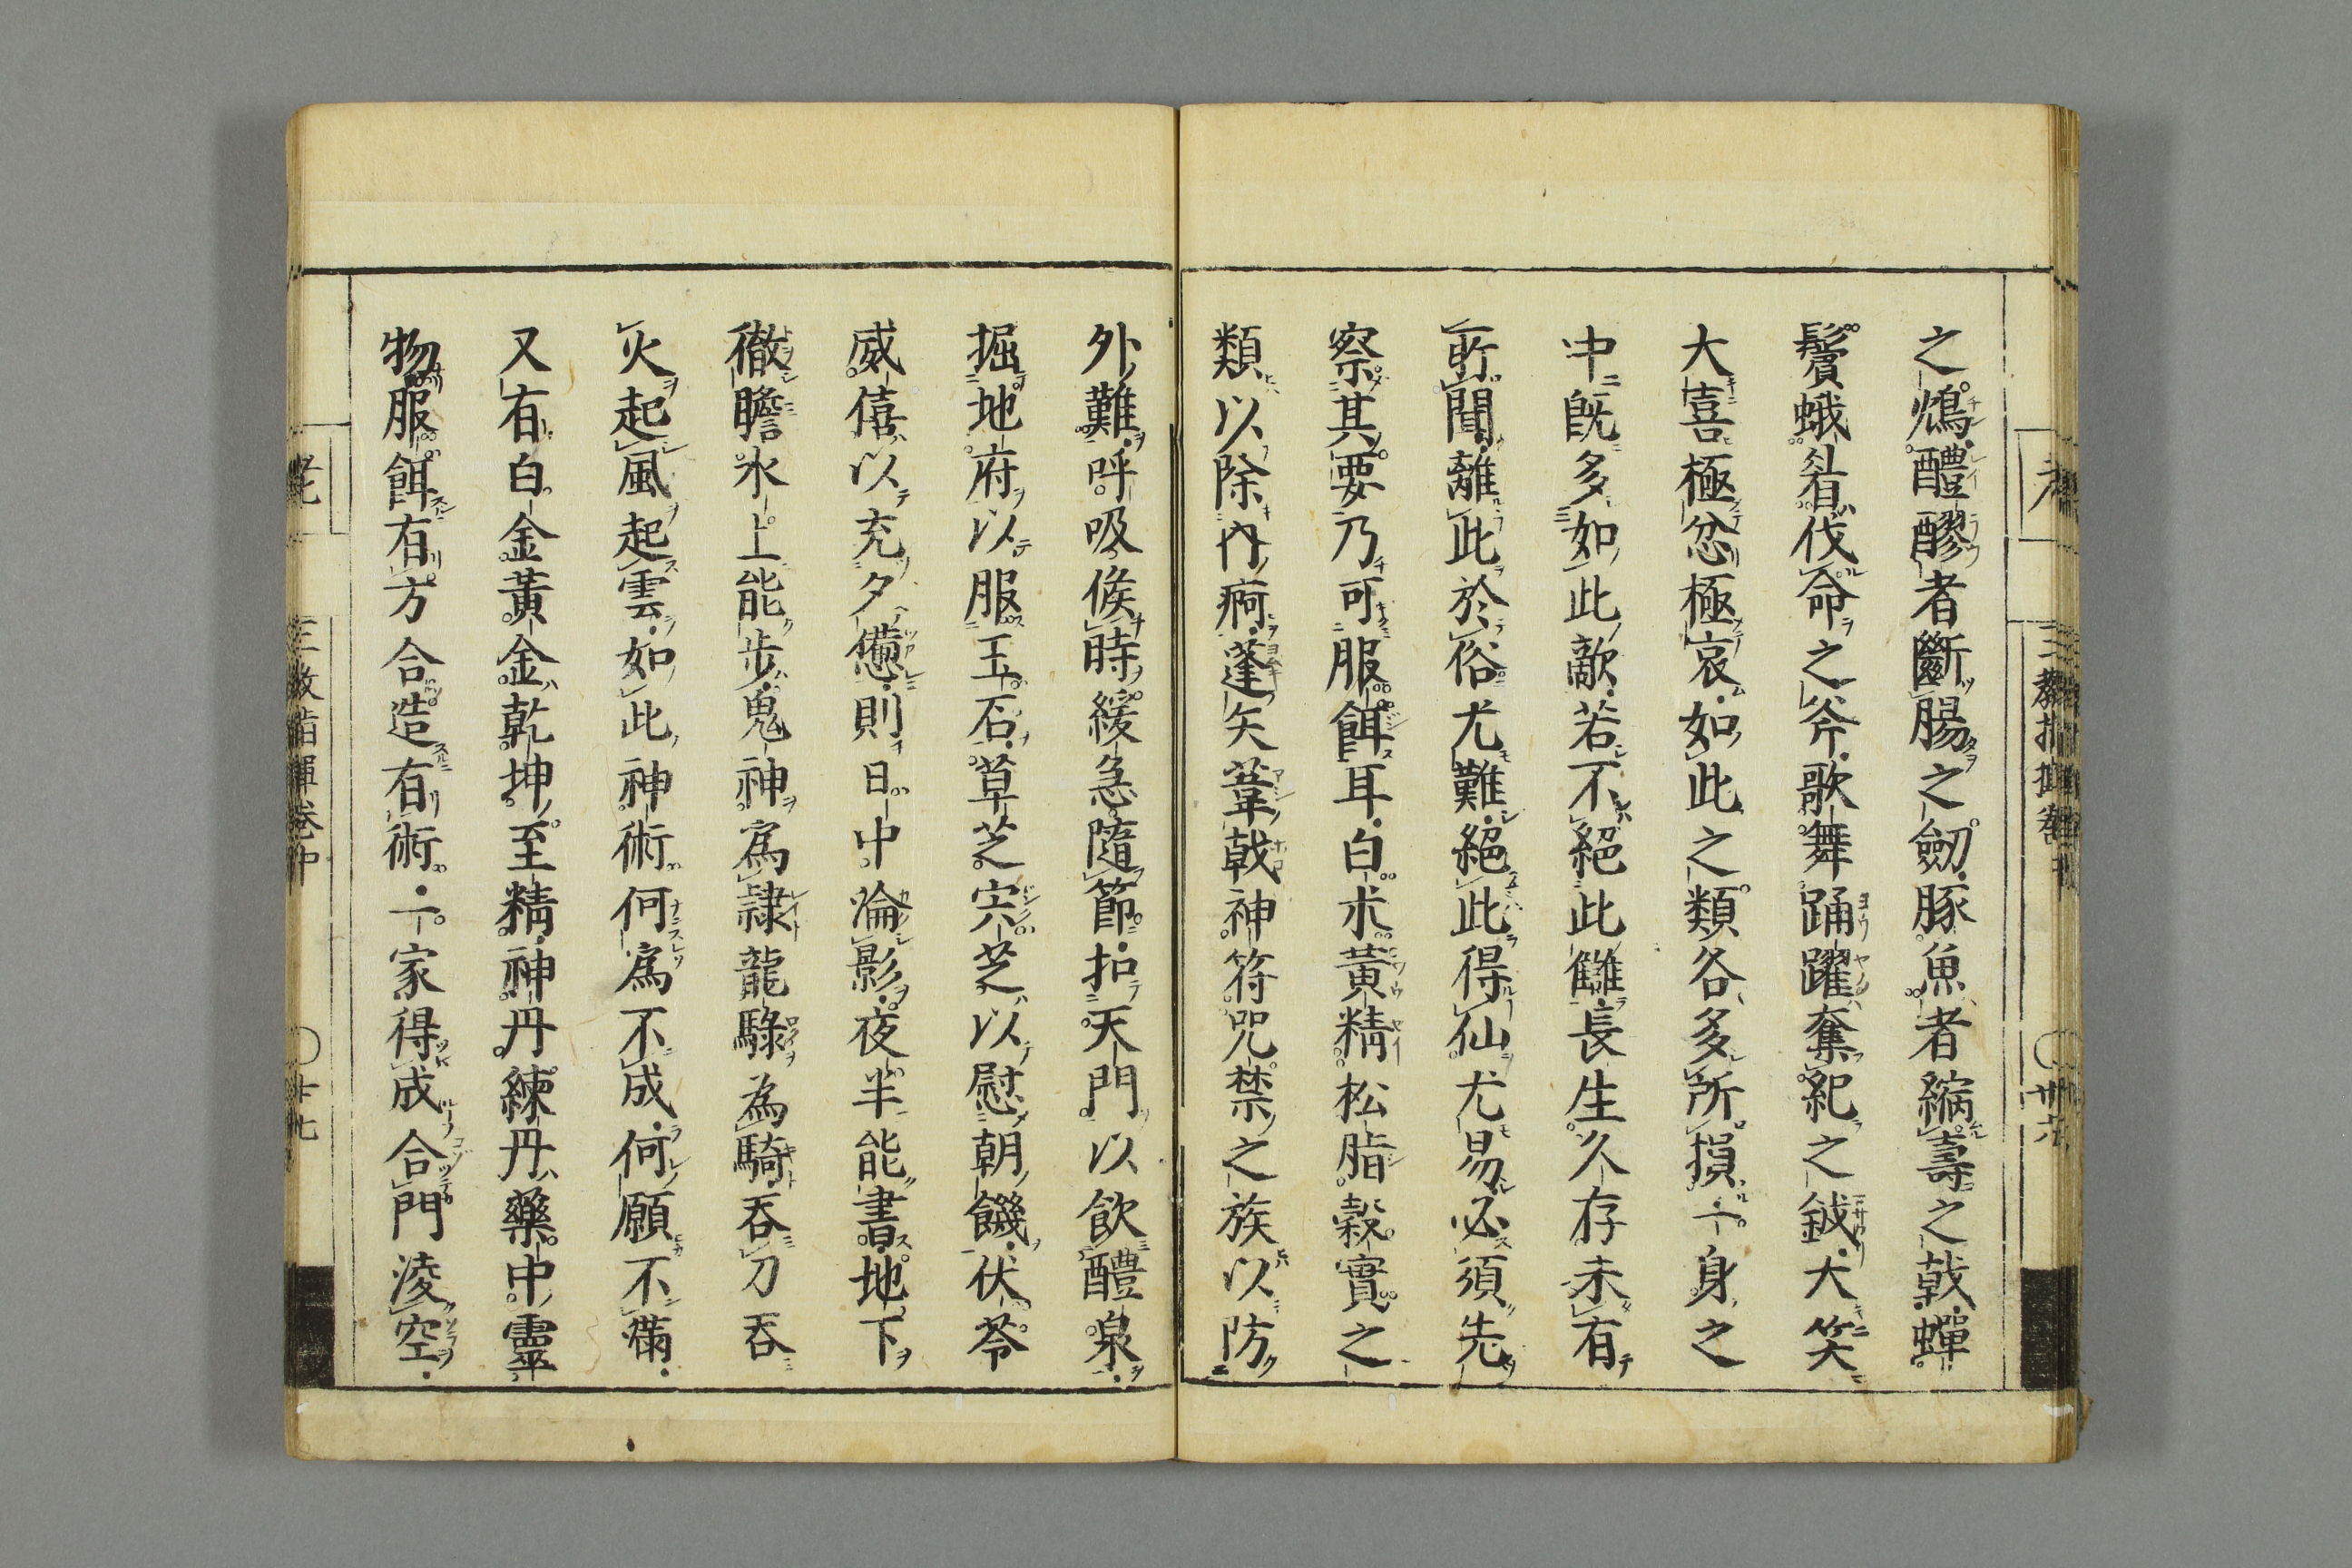 之鴆醴醪者斷腸之劒豚魚者縮壽之戟蟬
鬢蛾眉伐命之斧歌舞踊躍奪紀之鉞大笑
大喜極忿極哀如此之類各多所損一身之
中既多如此敵若不絕此讎長生久存未有
所聞離此於俗尤難絕此得仙尤易必須先
察其要乃可服餌耳白朮黃精松脂穀實之
類以除內痾蓬矢葦戟神符呪禁之族以防
外難呼吸候時緩急隨節扣天門以飲醴泉
掘地府以服玉石草芝宍芝以慰朝饑伏苓
威僖以充夕憊則日中淪影夜半能書地下
徹瞻水上能步鬼神爲隷龍騄為騎吞刀吞
火起風起雲如此神術何爲不成何願不滿
又有白金黃金乾坤至精神丹練丹藥中靈
物服餌有方合造有術一家得成合門淩空
三教指揮卷中